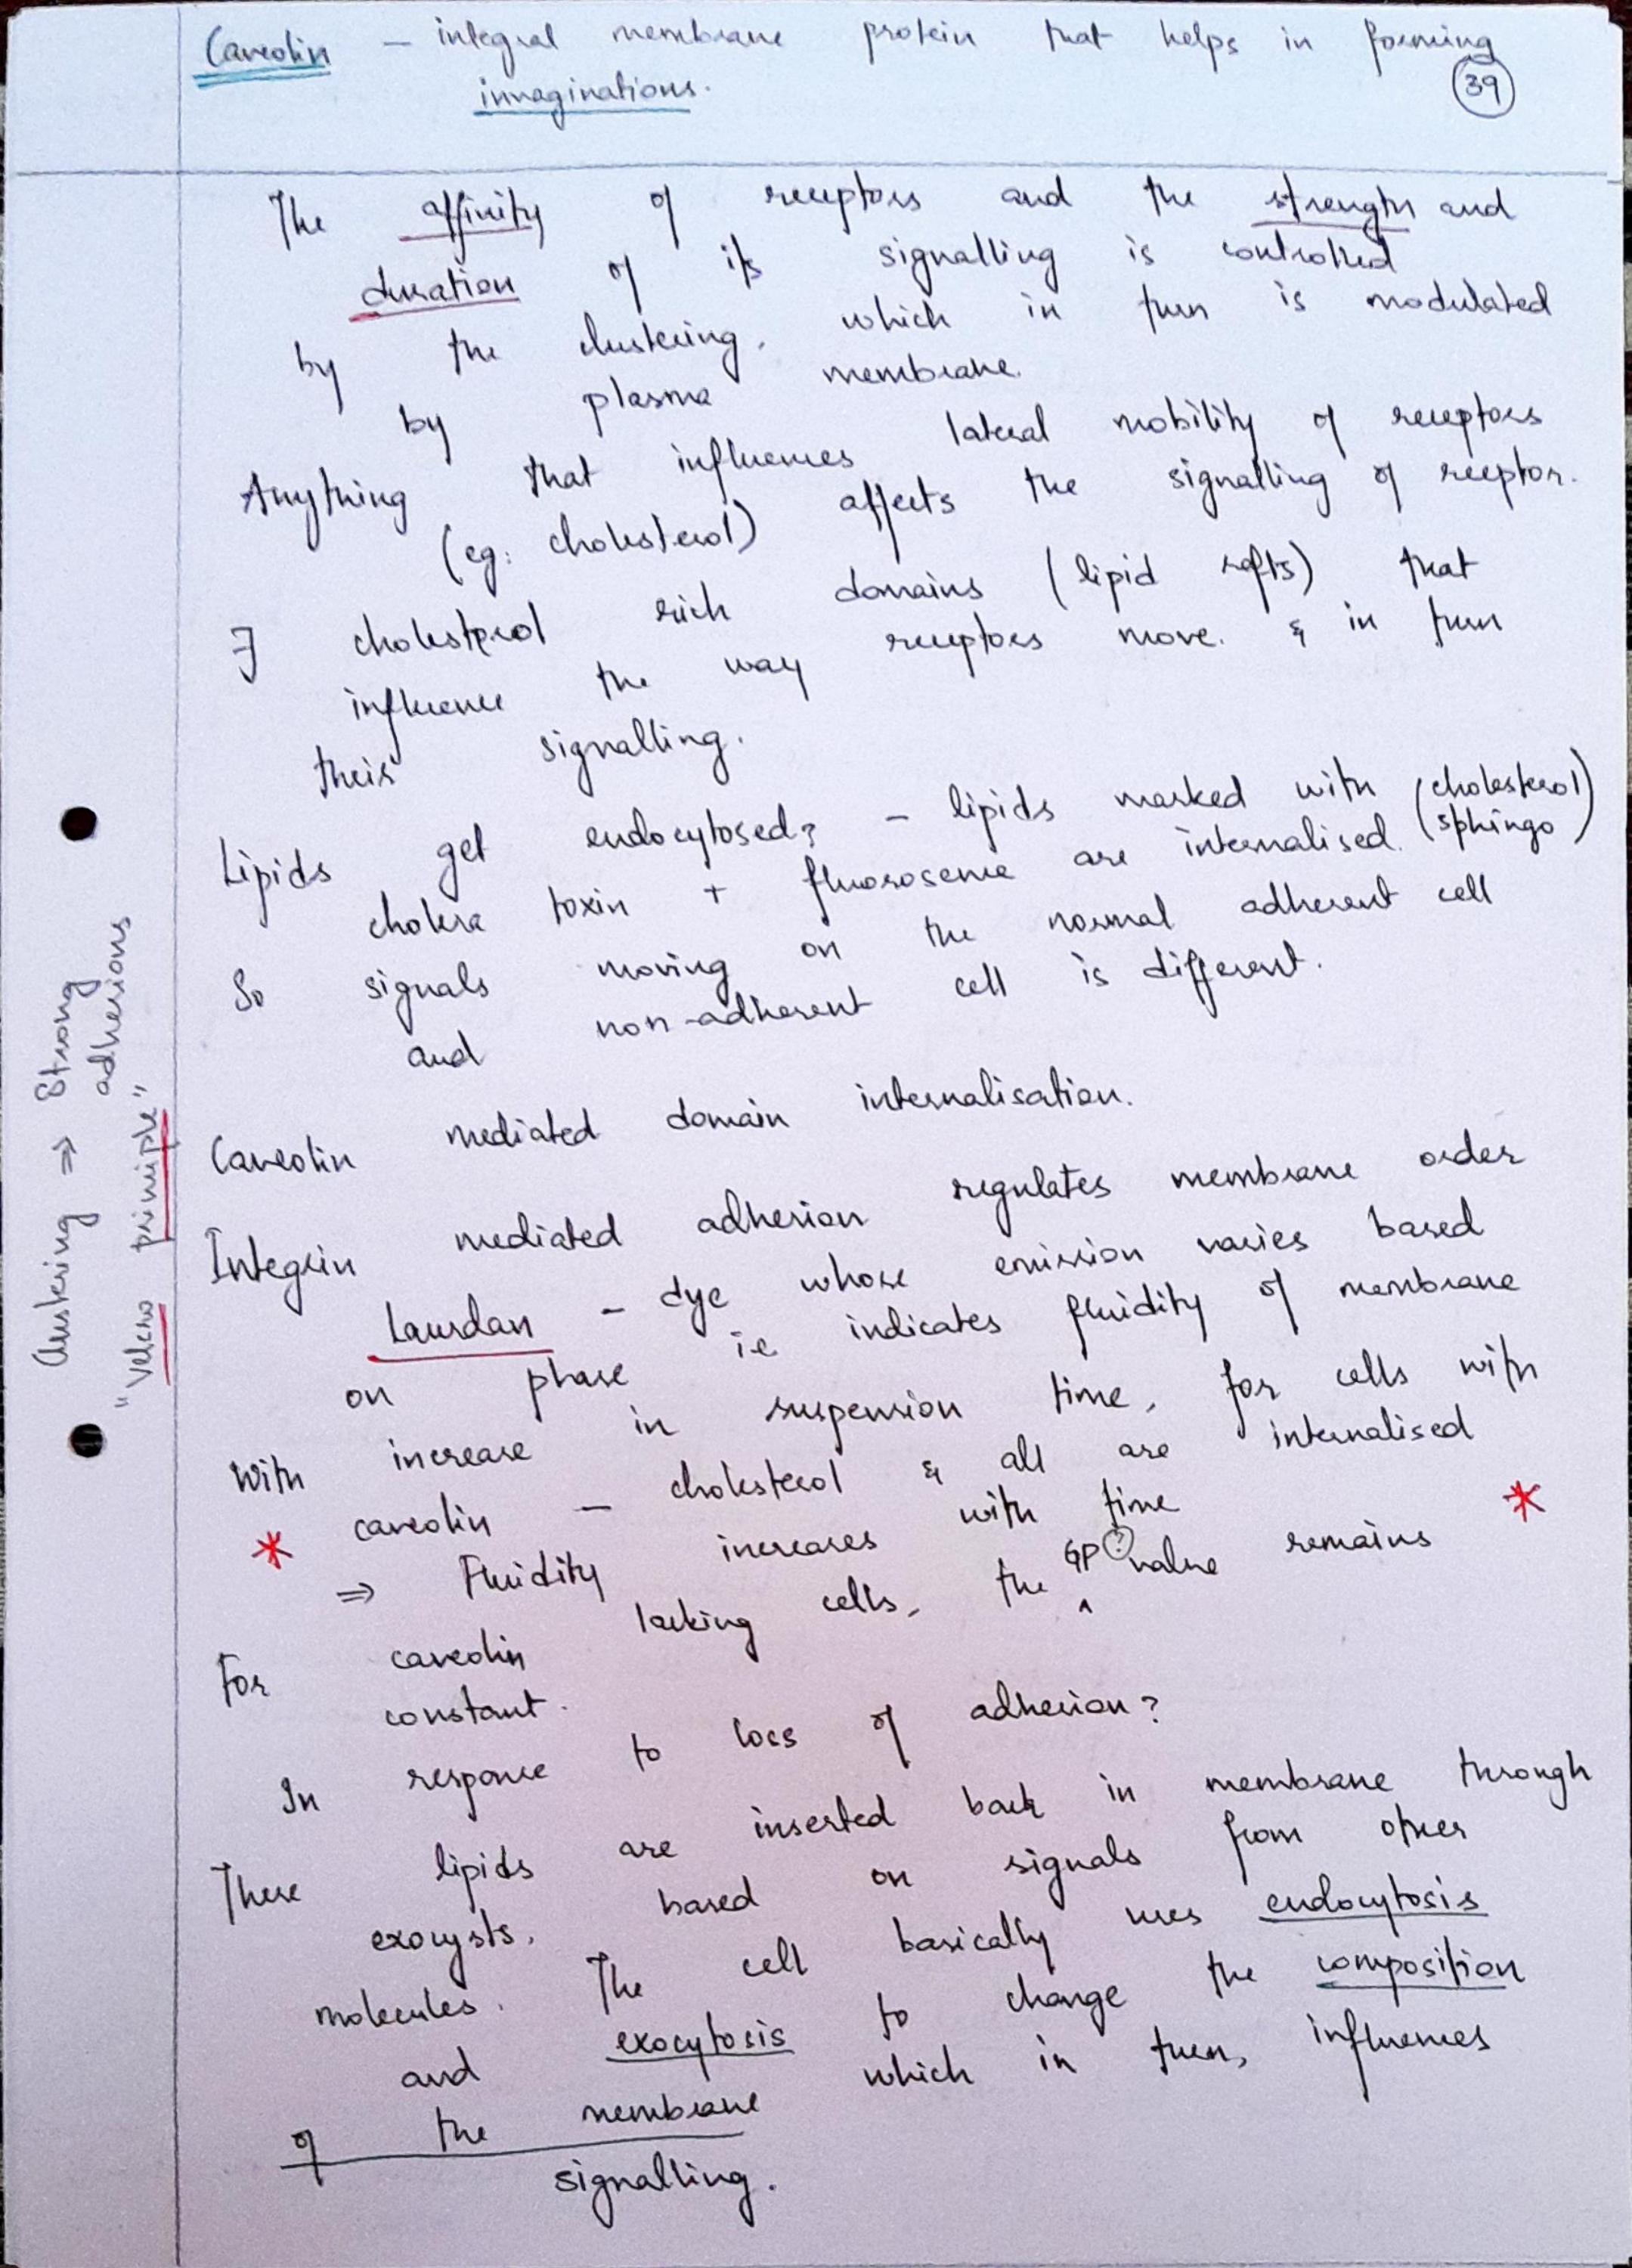 Caveolin — integral membrane protein that helps in forming
invaginations.
39
The affinity of receptors and the strength and
duration of its signalling is controlled
by the clustering, which in turn is modulated
by plasma membrane.
Anything that influences lateral mobility of receptors
(eg: cholesterol) affects the signalling of receptor.
∃ cholesterol rich domains (lipid rafts) that
influence the way receptors move. & in turn
their signalling.
Lipids get endocytosed? – lipids marked with (cholesterol)
cholera toxin + are internalised. (sphingo)
So signals moving on the normal adherent cell
and non-adherent cell is different.
Caveolin mediated domain internalisation.
Integrin mediated adhesion regulates membrane order
Laurdan – dye whose emission varies based
on phase ie indicates fluidity of membrane
With increase in suspension time, for cells with
caveolin – cholesterol & all are internalised
* ⇒ Fluidity increases with time *
For caveolin lacking cells, the GP? value remains
constant.
In response to loss of adhesion?
These lipids are inserted back in membrane through
exocysts, based on signals from other
molecules. The cell basically uses endocytosis
and exocytosis to change the composition
of the membrane which in turn, influences
signalling.
Clustering ⇒ Strong
adhesions
"Velcro principle"